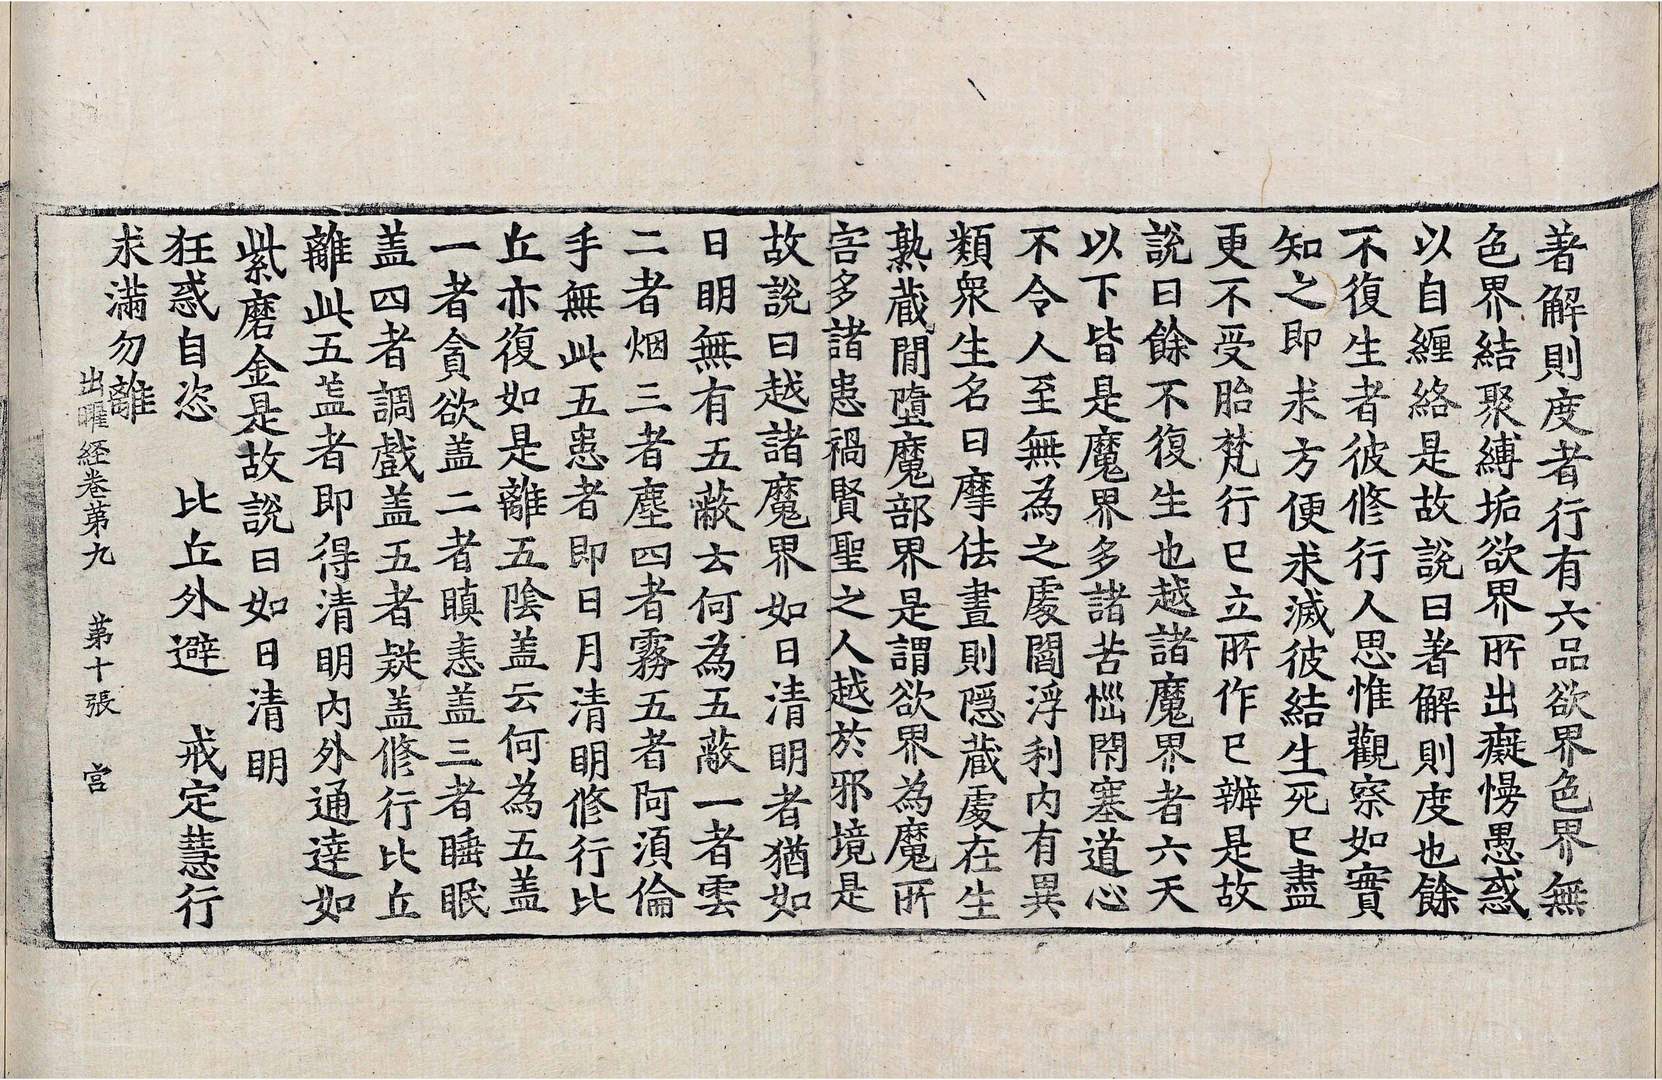 著解則度者行有六品欲界色界無
色界結聚縛垢欲界所出癡慢愚惑
以自纏絡是故說曰著解則度也餘
不復生者彼修行人思惟觀察如實
知之即求方便求滅彼結生死已盡
更不受胎梵行已立所作已辦是故
說曰餘不復生也越諸魔界者六天
以下皆是魔界多諸苦惱閇塞道心
不令人至無為之處閻浮利內有異
類衆生名曰摩佉晝則隱藏處在生
熟藏間墮魔部界是謂欲界為魔所
害多諸患禍賢聖之人越於邪境是
故說曰越諸魔界如日清明者猶如
日明無有五蔽云何為五蔽一者雲
二者烟三者塵四者霧五者阿須倫
手無此五患者即日月清明修行比
丘亦復如是離五陰盖云何為五盖
一者貪欲盖二者瞋恚盖三者睡眠
盖四者調戲盖五者疑盖修行比丘
離此五盖者即得清明內外通達如
紫磨金是故說曰如日清明
狂惑自恣 比丘外避 戒定慧行
求滿勿離
出曜經卷第九 第十張 宫